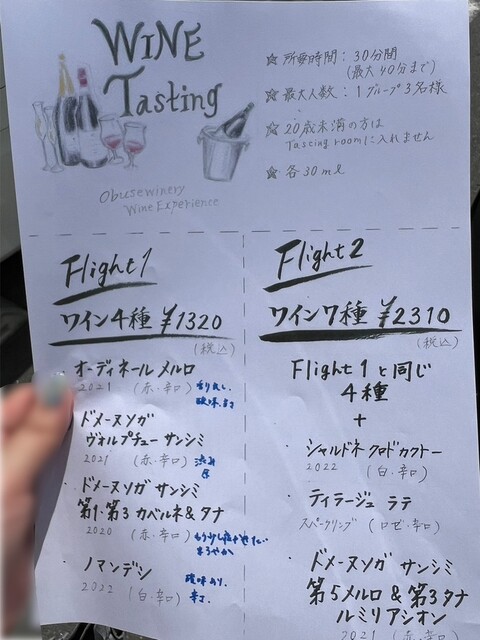 WINE
Tasting
Obusewinery
Wine Experience
☆ 所要時間：30分間
(最大40分まで)
☆ 最大人数：1グループ3名様
☆ 20歳未満の方は
Tasting roomに入れません
☆ 各30ml
Flight1
ワイン4種 ¥1320
(税込)
・オーディネール メルロ
2021 (赤・辛口)
酸味、
・ドメーヌソガ
ヴォルプチュー サンシミ
2021 (赤・辛口)
・ドメーヌソガ サンシミ
第1・第3 カベルネ&タナ
2020 (赤・辛口)
まろやか
・ノマンデシ
2022 (白・辛口)
酸味あり、
Flight2
ワイン7種 ¥2310
(税込)
Flight1と同じ
4種
+
・シャルドネ クロドカクトー
2022 (白・辛口)
・ティラージュ ラテ
スパークリング (ロゼ・辛口)
・ドメーヌソガ サンシミ
第5メルロ&第3タナ
ルミリアシオン
2021 (赤・辛口)